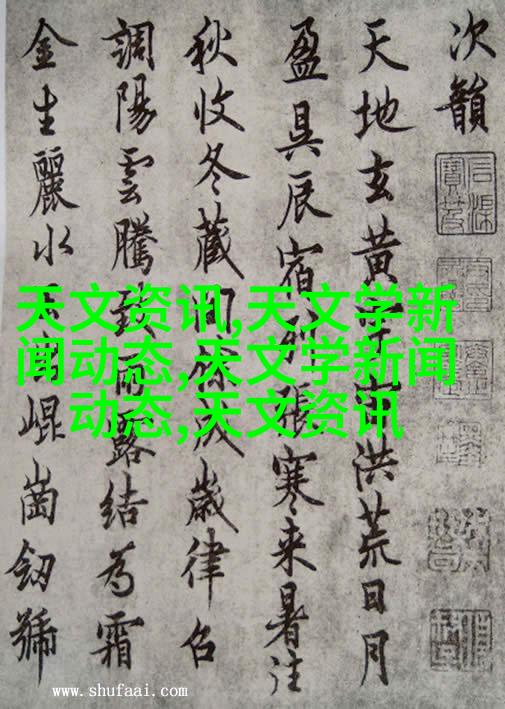 次韻
天地玄黃宇宙洪荒日月
盈昃辰宿列張寒来暑往
秋收冬藏閏餘成歲律召
調陽雲騰致雨露結為霜
金生麗水玉出崐崗釼號
天文资讯,天文学新
闻动态,天文学新闻
动态,天文资讯
www.shufaai.com